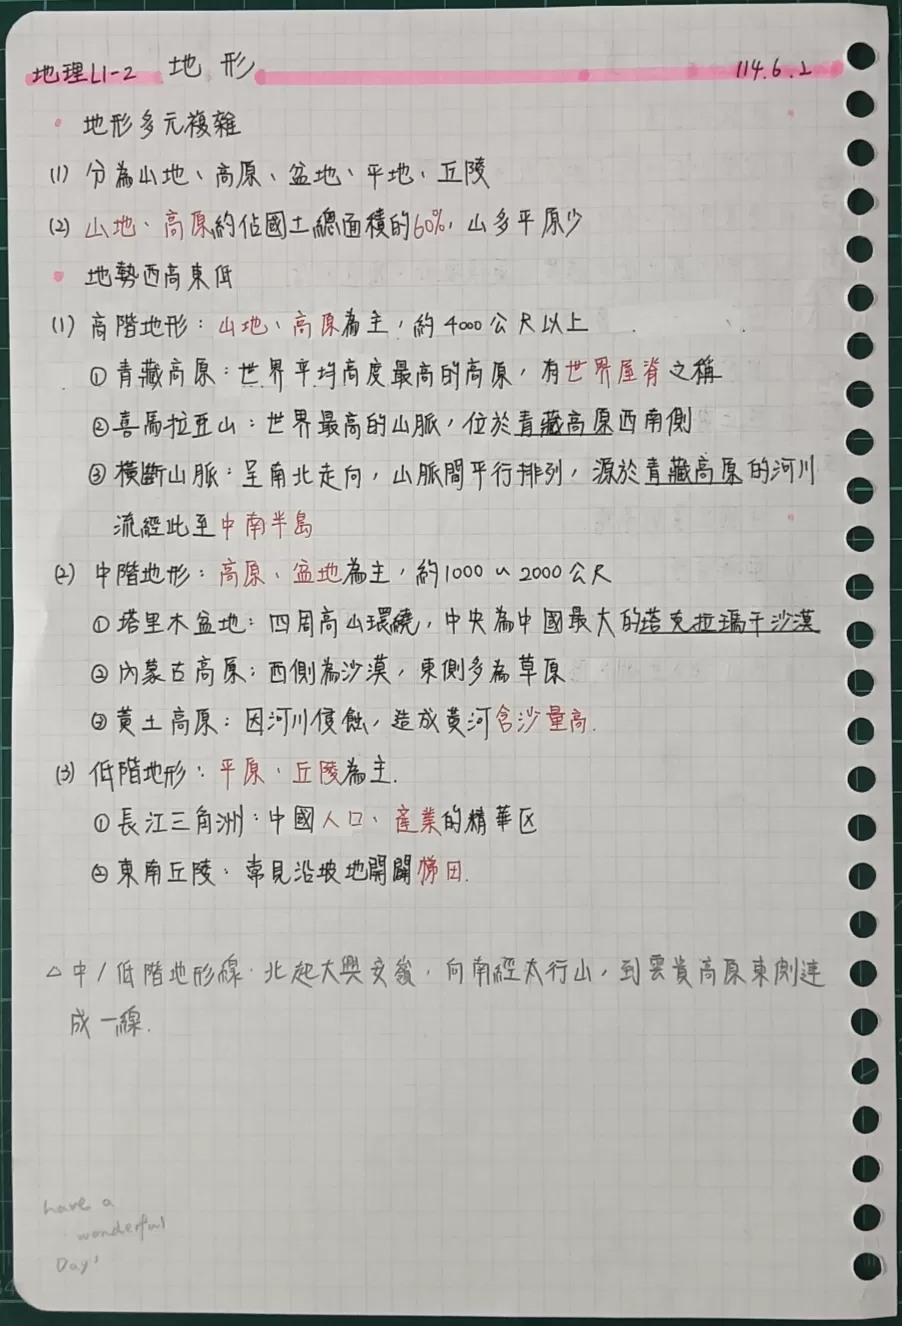 地理L1-2 地形 114.6.2
• 地形多元複雜
(1) 分為山地、高原、盆地、平地、丘陵
(2) 山地、高原約佔國土總面積的60%,山多平原少
• 地勢西高東低
(1) 高階地形:山地、高原為主,約4000公尺以上
① 青藏高原:世界平均高度最高的高原,有世界屋脊之稱
② 喜馬拉亞山:世界最高的山脈,位於青藏高原西南側
③ 橫斷山脈:呈南北走向,山脈間平行排列,源於青藏高原的河川
流經此至中南半島
(2) 中階地形:高原、盆地為主,約1000~2000公尺
① 塔里木盆地:四周高山環繞,中央為中國最大的塔克拉瑪干沙漠
② 內蒙古高原:西側為沙漠,東側多為草原
③ 黃土高原:因河川侵蝕,造成黃河含沙量高.
(3) 低階地形:平原、丘陵為主.
① 長江三角洲:中國人口、產業的精華区
② 東南丘陵:常見沿坡地開闢梯田.
△ 中/低階地形線:北起大興安嶺,向南經太行山,到雲貴高原東側連
成一線.
have a
wonderful
Day!